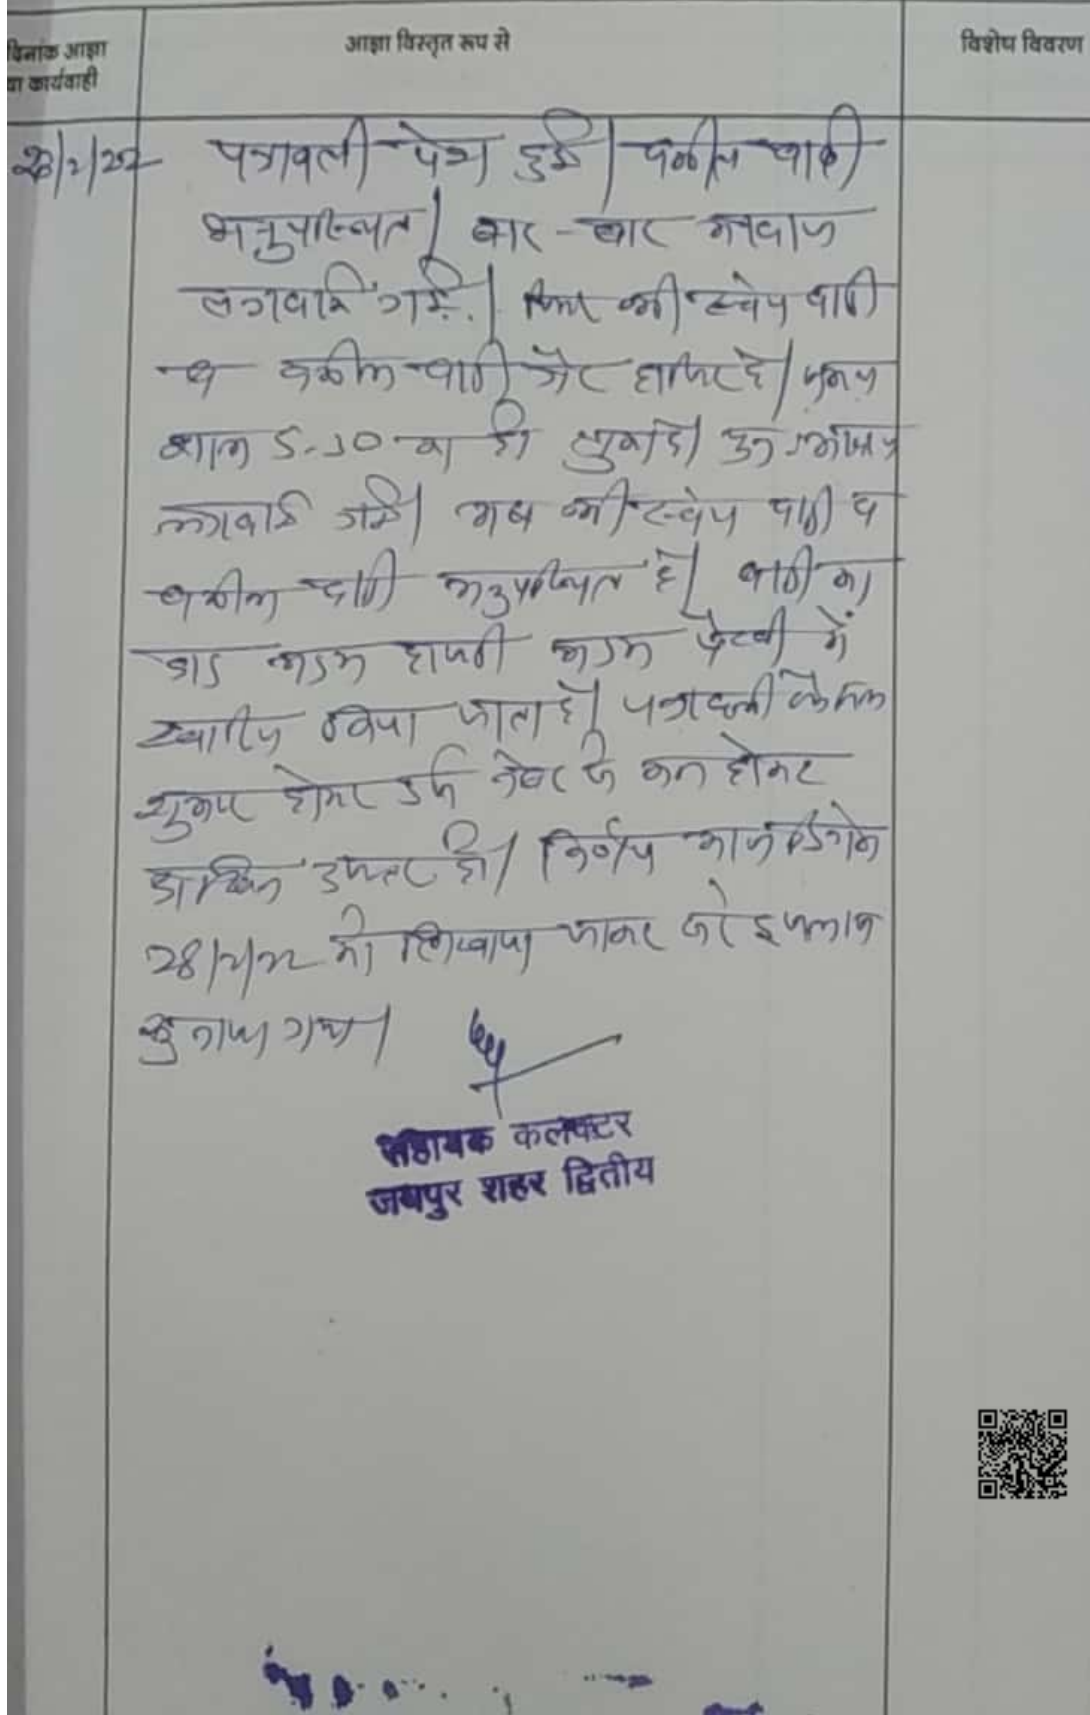 दिनांक आज्ञा
या कार्यवाही
आज्ञा विस्तृत रूप से
विशेष विवरण
28/2/22 पत्रावली पेश हुई। वकील वादी
अनुपस्थित। बार-बार आवाज
लगवाई गई। फिर भी स्वयं वादी
व वकील वादी गैर हाजिर है। समय
शाम 5-10 का हो चुका है। पुनः आवाज
लगवाई गई। अब भी स्वयं वादी व
वकील वादी अनुपस्थित है। वादी का
वाद अदम हाजरी अदम पैरवी में
खारिज किया जाता है। पत्रावली फैसल
शुमार होकर नंबर से कम होकर
दाखिल दफ्तर हो। निर्णय आज दिनांक
28/2/22 को लिखवाया जाकर सरे इजलास
सुनाया गया।
सहायक कलक्टर
जयपुर शहर द्वितीय